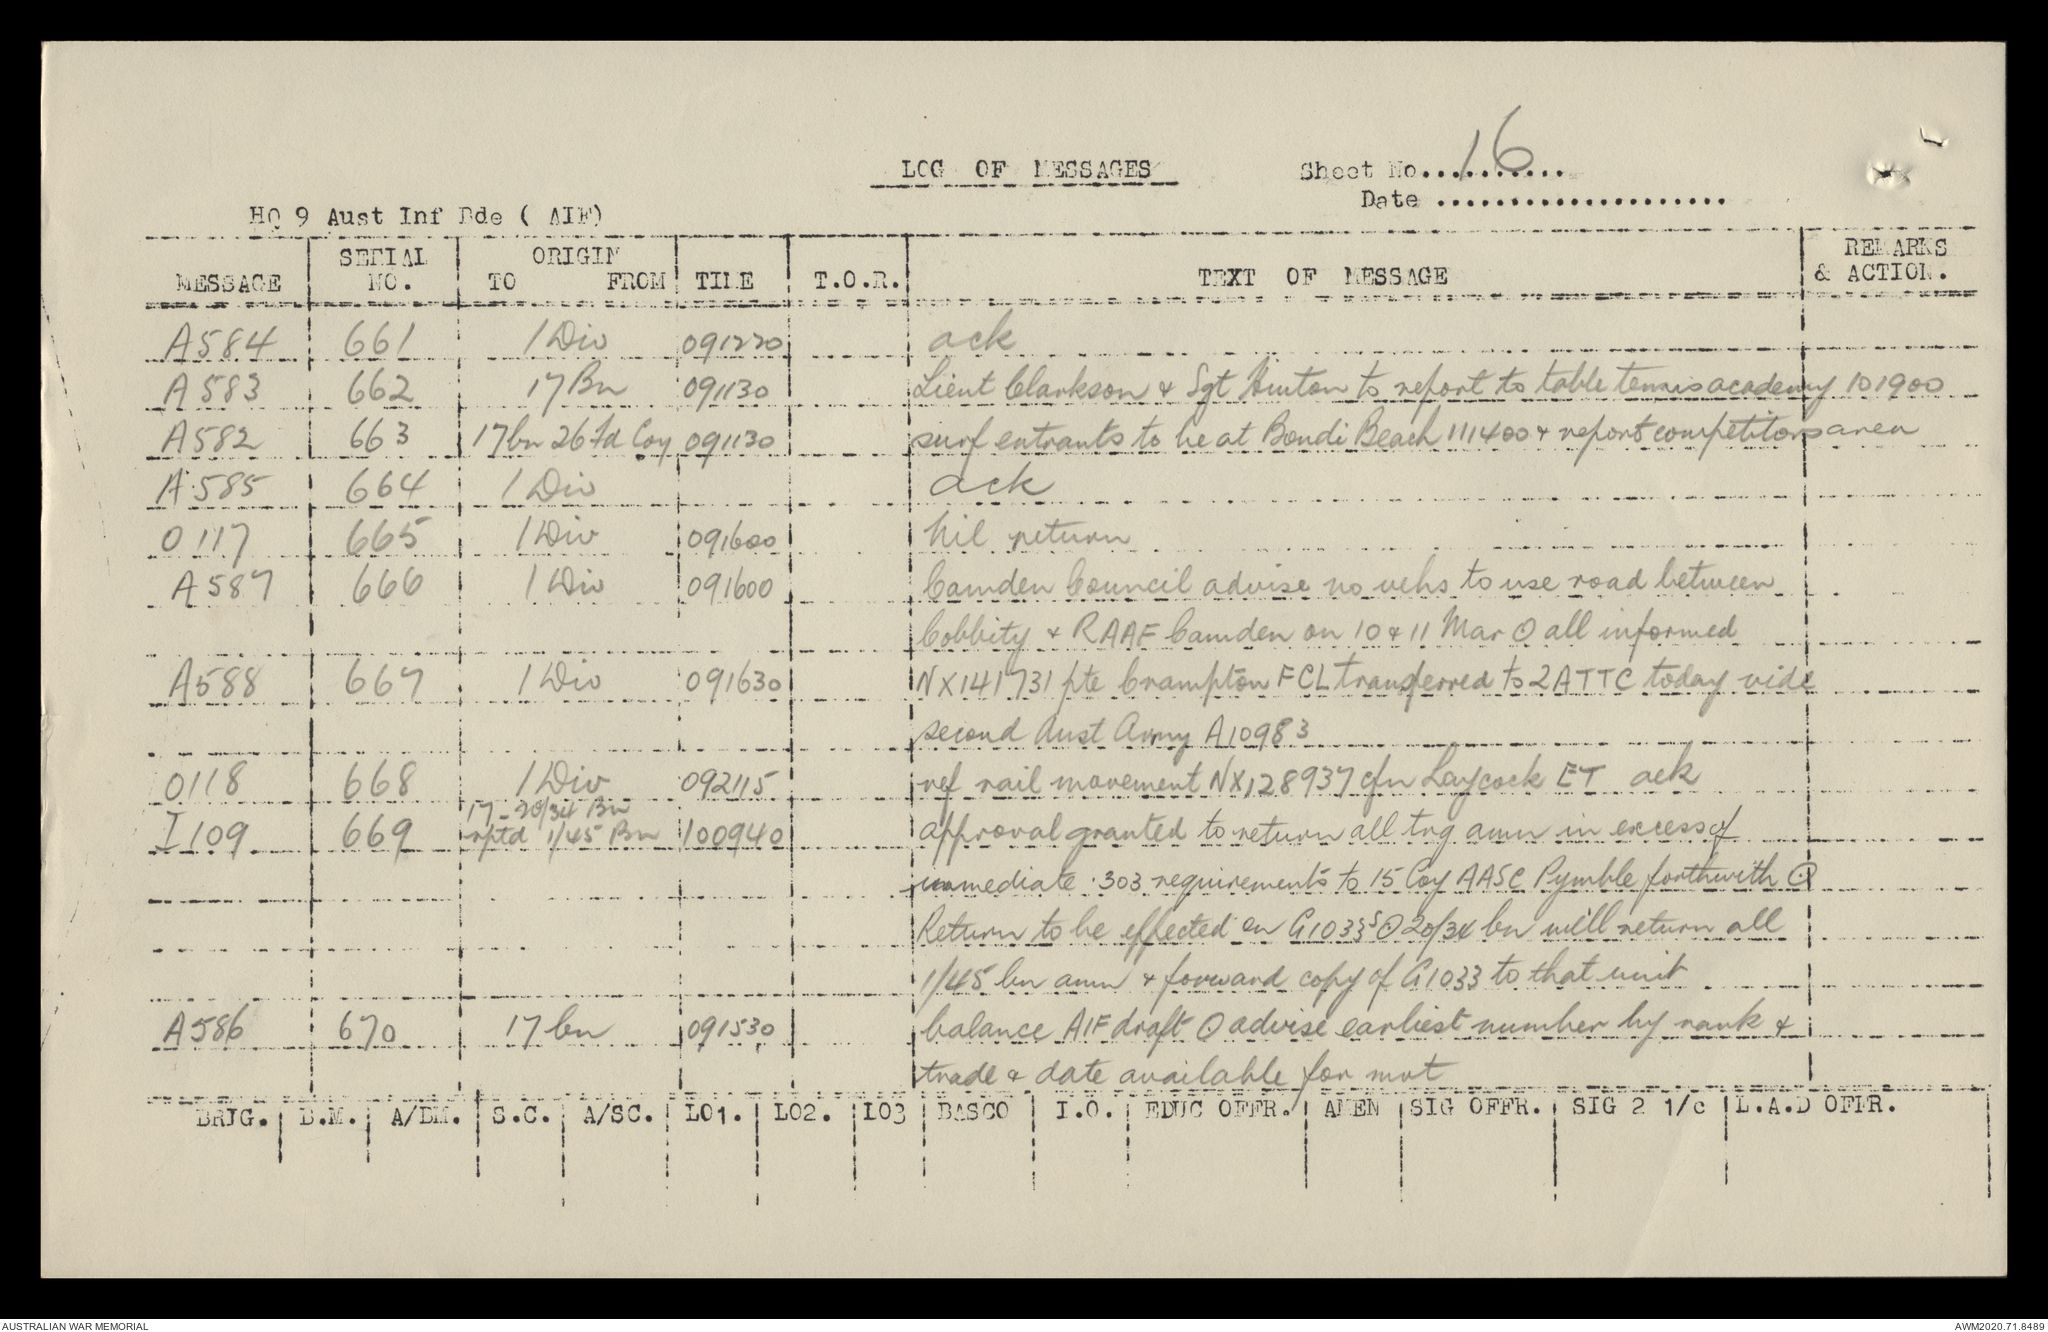 LOG OF MESSAGES
Sheet No...16......
Date ....................
HQ 9 Aust Inf Bde ( AIF)
MESSAGE SERIAL NO. ORIGIN TO FROM TIME T.O.R. TEXT OF MESSAGE REMARKS & ACTION.
A584 661 1 Div 091220 ack
A583 662 17 Bn 091130 Lieut Clarkson & Sgt Hinton to report to table tennis academy 101900
A582 663 17bn 26 Fd Coy 091130 surf entrants to be at Bondi Beach 111400 & report competitors area
A585 664 1 Div ack
O117 665 1 Div 091600 Nil return
A587 666 1 Div 091600 Camden Council advise no vehs to use road between
Cobbity & RAAF Camden on 10 & 11 Mar ⊙ all informed
A588 667 1 Div 091630 NX141731 pte Crampton FCL transferred to 2ATTC today vide
second Aust Army A10983
O118 668 1 Div 092115 ref rail movement NX128937 cfn Laycock ET ack
I109 669 17 - 20/34 Bn rptd 1/45 Bn 100940 approval granted to return all trg amn in excess of
immediate .303 requirements to 15 Coy AASC Pymble forthwith ⊙
Return to be effected on G1033s ⊙ 20/34 bn will return all
1/45 bn amn & forward copy of G1033 to that unit
A586 670 17 bn 091530 balance AIF draft ⊙ advise earliest number by rank &
trade & date available for mvt
BRIG. B.M. A/BM. S.C. A/SC. LO1. LO2. LO3 BASCO I.O. EDUC OFFR. AMEN SIG OFFR. SIG 2 i/c L.A.D OFFR.
AUSTRALIAN WAR MEMORIAL
AWM2020.71.8489